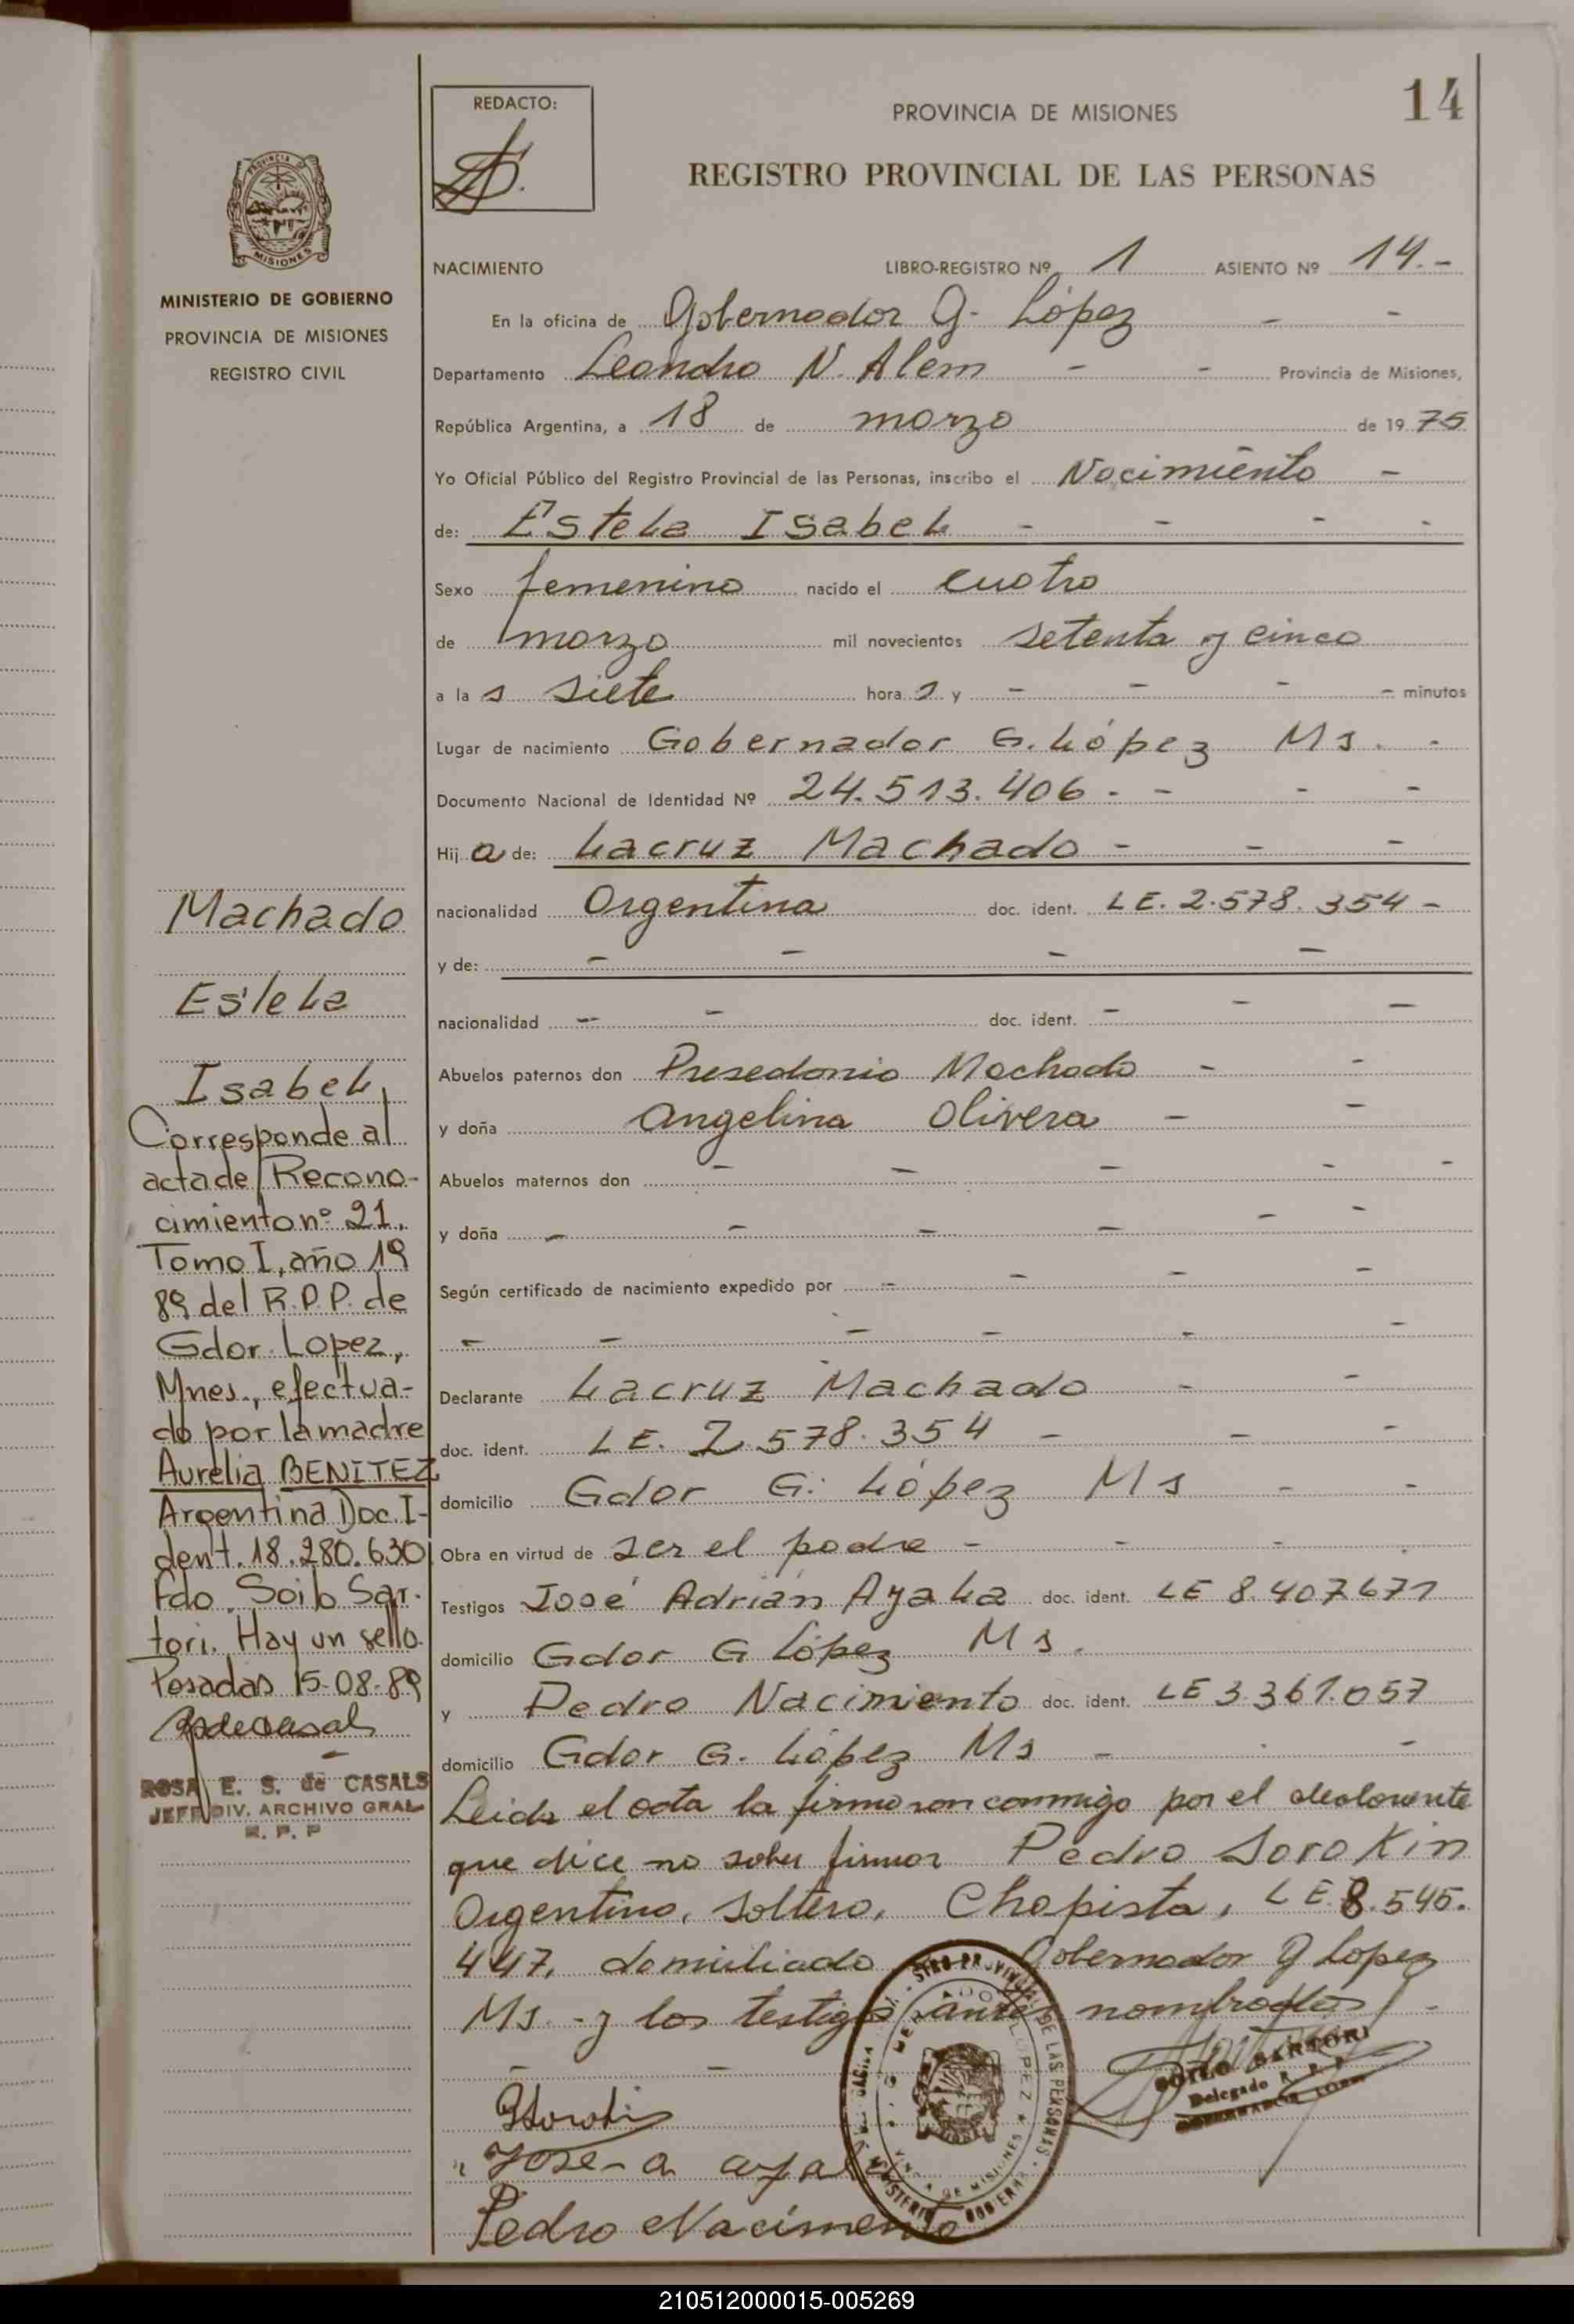 14
REDACTO:
PROVINCIA DE MISIONES
REGISTRO PROVINCIAL DE LAS PERSONAS
MISIONES
MINISTERIO DE GOBIERNO
PROVINCIA DE MISIONES
REGISTRO CIVIL
Machado
Estela
Isabel
Corresponde al
acta de Recono-
cimiento nº 21.
Tomo I, año 19
89 del R.P.P. de
Gdor. Lopez,
Mnes., efectua-
do por la madre
Aurelia BENITEZ
Argentina Doc. I-
dent. 18.280.630
Fdo. Soilo Sar-
tori. Hay un sello.
Posadas 15-08-89
ROSA E. S. de CASALS
JEFE DIV. ARCHIVO GRAL
R. P. P
NACIMIENTO LIBRO-REGISTRO Nº 1 ASIENTO Nº 14.-
En la oficina de Gobernador G. López - -
Departamento Leandro N. Alem - - Provincia de Misiones,
República Argentina, a 18 de marzo de 19 75
Yo Oficial Público del Registro Provincial de las Personas, inscribo el Nacimiento -
de: Estela Isabel - - - -
Sexo femenino nacido el cuatro
de marzo mil novecientos setenta y cinco
a la s siete hora s y - - - - minutos
Lugar de nacimiento Gobernador G. López Ms. -
Documento Nacional de Identidad Nº 24.513.406 - - - -
Hij a de: Lacruz Machado - - -
nacionalidad Argentina doc. ident. LE. 2.578.354 -
y de: - - - -
nacionalidad - - doc. ident. - - -
Abuelos paternos don Presedonio Machado - -
y doña Angelina Olivera - -
Abuelos maternos don - - - - -
y doña - - - - - -
Según certificado de nacimiento expedido por - - - -
- - - - - -
Declarante Lacruz Machado - -
doc. ident. LE. 2.578.354 - - -
domicilio Gdor G. López Ms - -
Obra en virtud de ser el padre - - - .
Testigos José Adrián Ayala doc. ident. LE 8.407.671
domicilio Gdor G López Ms.
y Pedro Nacimiento doc. ident. LE 3.361.057
domicilio Gdor G. López Ms - -
Leida el acta la firmaron conmigo por el declarante
que dice no saber firmar Pedro Sorokin
Argentino, soltero, Chapista, LE 8.545.
447, domiciliado Gobernador G Lopez
Ms. - y los testigos antes nombrados -
- -
SOILO SARTORI
Delegado R. P. P.
GOBERNADOR LOPEZ
Jose - a ayala
Pedro Nacimento
210512000015-005269